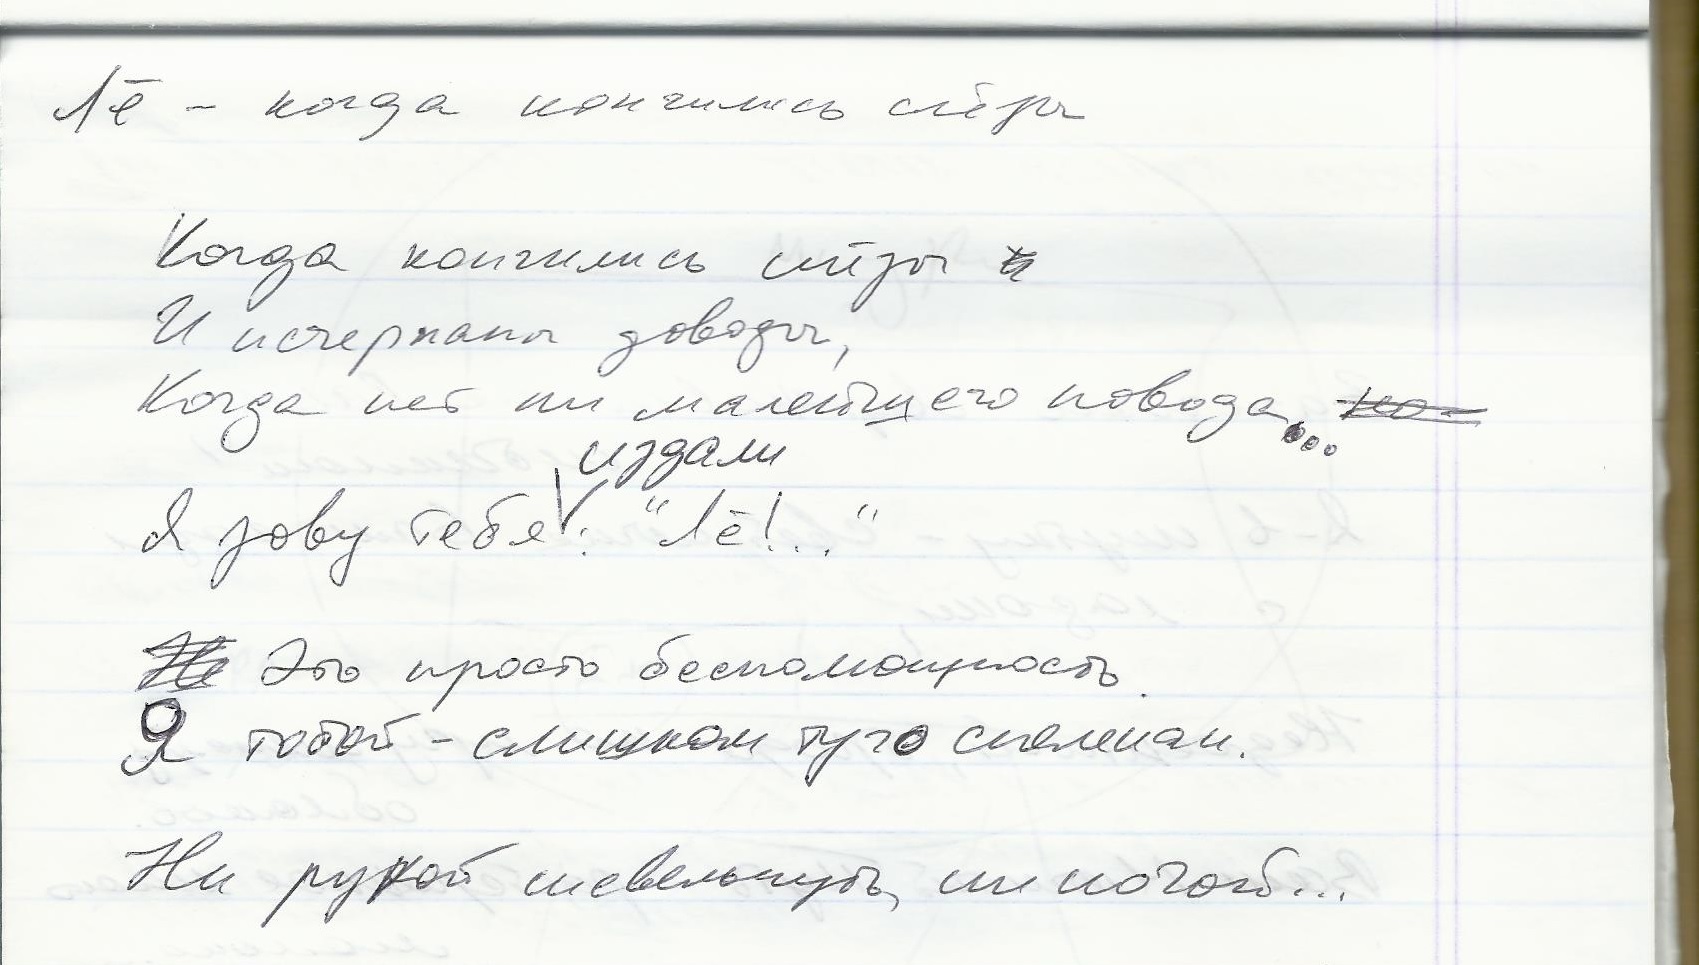 Лё - когда кончились слёзы
Когда кончились слёзы
И исчерпаны доводы,
Когда нет ни малейшего повода...
издали
Я зову тебя: "Лё!.."
Это просто беспомощность.
Я тобой - слишком туго спеленан.
Ни рукой шевельнуть, ни ногой...